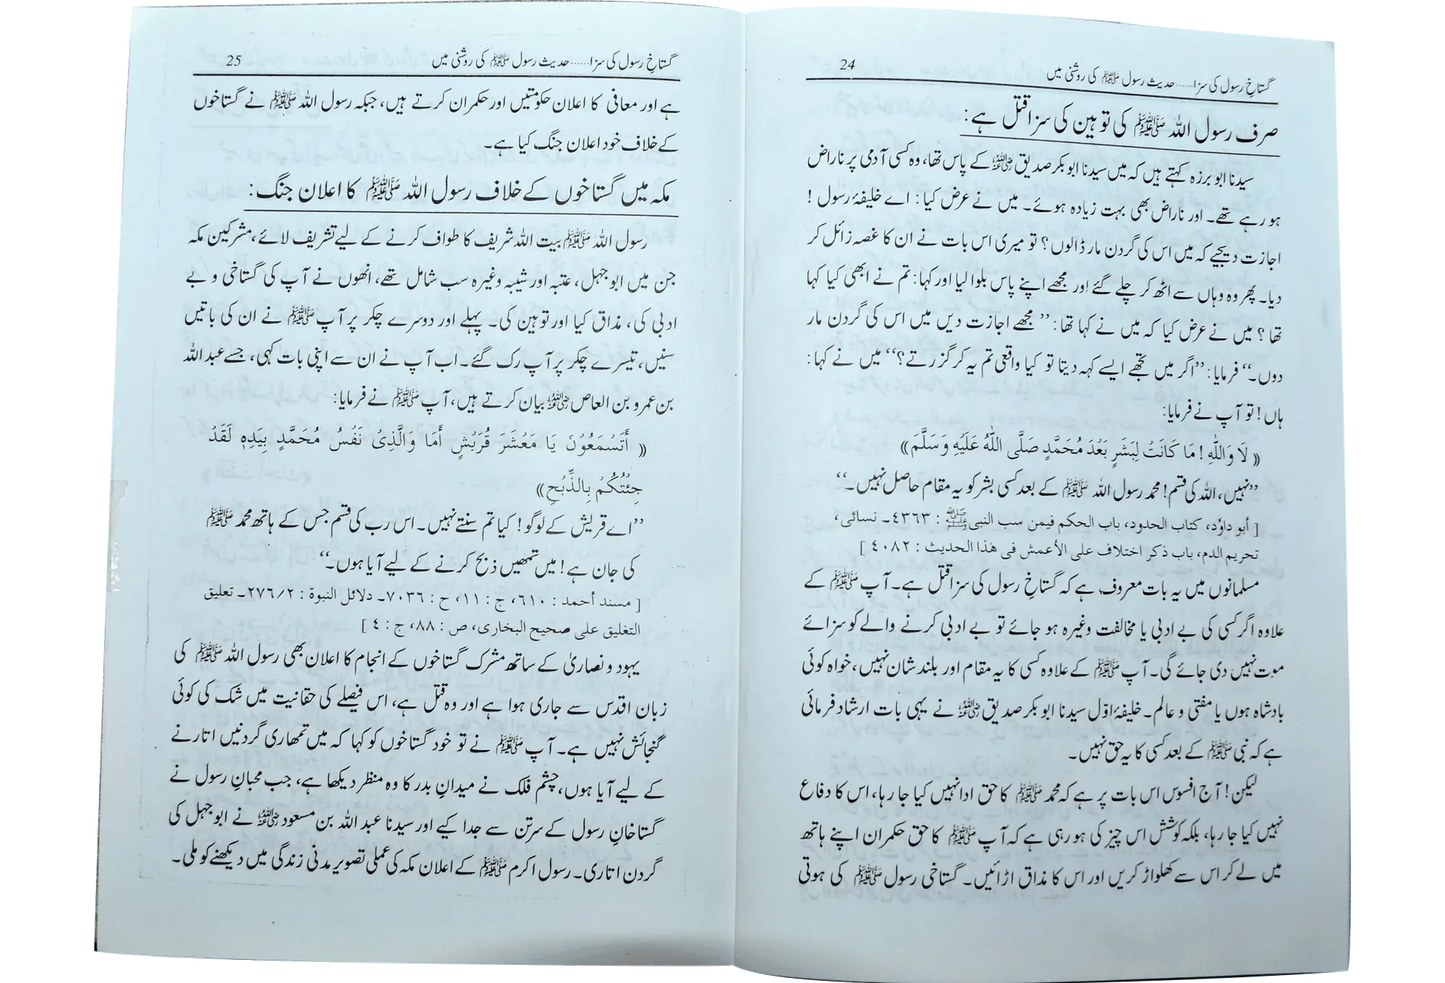 گستاخِ رسول کی سزا......حدیث رسول ﷺ کی روشنی میں 24
صرف رسول اللہ ﷺ کی توہین کی سزا قتل ہے:
سیدنا ابو برزہ کہتے ہیں کہ میں سیدنا ابوبکر صدیق رضی اللہ عنہ کے پاس تھا، وہ کسی آدمی پر ناراض
ہو رہے تھے۔ اور ناراض بھی بہت زیادہ ہوئے۔ میں نے عرض کیا: اے خلیفۂ رسول !
اجازت دیجیے کہ میں اس کی گردن مار ڈالوں؟ تو میری اس بات نے ان کا غصہ زائل کر
دیا۔ پھر وہ وہاں سے اٹھ کر چلے گئے اور مجھے اپنے پاس بلوا لیا اور کہا: تم نے ابھی کیا کہا
تھا؟ میں نے عرض کیا کہ میں نے کہا تھا: ’’ مجھے اجازت دیں میں اس کی گردن مار
دوں۔‘‘ فرمایا: ’’اگر میں تجھے ایسے کہہ دیتا تو کیا واقعی تم یہ کر گزرتے؟‘‘ میں نے کہا:
ہاں! تو آپ نے فرمایا:
(( لَا وَاللّٰهِ ! مَا كَانَتْ لِبَشَرٍ بَعْدَ مُحَمَّدٍ صَلَّى اللّٰهُ عَلَيْهِ وَسَلَّمَ ))
’’نہیں، اللہ کی قسم! محمد رسول اللہ ﷺ کے بعد کسی بشر کو یہ مقام حاصل نہیں۔‘‘
[ أبو داؤد، كتاب الحدود، باب الحكم فيمن سب النبى ﷺ : ٤٣٦٣ـ نسائى،
تحريم الدم، باب ذكر اختلاف على الأعمش فى هذا الحديث : ٤٠٨٢ ]
مسلمانوں میں یہ بات معروف ہے کہ گستاخِ رسول کی سزا قتل ہے۔ آپ ﷺ کے
علاوہ اگر کسی کی بے ادبی یا مخالفت وغیرہ ہو جائے تو بے ادبی کرنے والے کو سزائے
موت نہیں دی جائے گی۔ آپ ﷺ کے علاوہ کسی کا یہ مقام اور بلند شان نہیں، خواہ کوئی
بادشاہ ہوں یا مفتی و عالم۔ خلیفۂ اوّل سیدنا ابوبکر صدیق رضی اللہ عنہ نے یہی بات ارشاد فرمائی
ہے کہ نبی ﷺ کے بعد کسی کا یہ حق نہیں۔
لیکن! آج افسوس اس بات پر ہے کہ محمد ﷺ کا حق ادا نہیں کیا جا رہا، اس کا دفاع
نہیں کیا جا رہا، بلکہ کوشش اس چیز کی ہو رہی ہے کہ آپ ﷺ کا حق حکمران اپنے ہاتھ
میں لے کر اس سے کھلواڑ کریں اور اس کا مذاق اڑائیں۔ گستاخی رسول ﷺ کی ہوتی
گستاخِ رسول کی سزا......حدیث رسول ﷺ کی روشنی میں 25
ہے اور معافی کا اعلان حکومتیں اور حکمران کرتے ہیں، جبکہ رسول اللہ ﷺ نے گستاخوں
کے خلاف خود اعلان جنگ کیا ہے۔
مکہ میں گستاخوں کے خلاف رسول اللہ ﷺ کا اعلان جنگ:
رسول اللہ ﷺ بیت اللہ شریف کا طواف کرنے کے لیے تشریف لائے، مشرکین مکہ
جن میں ابوجہل، عتبہ اور شیبہ وغیرہ سب شامل تھے، انھوں نے آپ کی گستاخی و بے
ادبی کی، مذاق کیا اور توہین کی۔ پہلے اور دوسرے چکر پر آپ ﷺ نے ان کی باتیں
سنیں، تیسرے چکر پر آپ رک گئے۔ اب آپ نے ان سے اپنی بات کہی، جسے عبد اللہ
بن عمرو بن العاص رضی اللہ عنہ بیان کرتے ہیں، آپ ﷺ نے فرمایا:
(( أَتَسْمَعُوْنَ يَا مَعْشَرَ قُرَيْشٍ أَمَا وَالَّذِىْ نَفْسُ مُحَمَّدٍ بِيَدِهٖ لَقَدْ
جِئْتُكُمْ بِالذِّبْحِ ))
’’اے قریش کے لوگو! کیا تم سنتے نہیں۔ اس رب کی قسم جس کے ہاتھ محمد ﷺ
کی جان ہے! میں تمھیں ذبح کرنے کے لیے آیا ہوں۔‘‘
[ مسند أحمد : ٦١٠، ج : ١١، ح : ٧٠٣٦ـ دلائل النبوة : ٢٧٦/٢ـ تعليق
التغليق على صحيح البخارى، ص : ٨٨، ج : ٤ ]
یہود و نصاریٰ کے ساتھ مشرک گستاخوں کے انجام کا اعلان بھی رسول اللہ ﷺ کی
زبان اقدس سے جاری ہوا ہے اور وہ قتل ہے، اس فیصلے کی حقانیت میں شک کی کوئی
گنجائش نہیں ہے۔ آپ ﷺ نے تو خود گستاخوں کو کہا کہ میں تمھاری گردنیں اتارنے
کے لیے آیا ہوں، چشم فلک نے میدانِ بدر کا وہ منظر دیکھا ہے، جب محبانِ رسول نے
گستاخانِ رسول کے سر تن سے جدا کیے اور سیدنا عبد اللہ بن مسعود رضی اللہ عنہ نے ابوجہل کی
گردن اتاری۔ رسول اکرم ﷺ کے اعلان مکہ کی عملی تصویر مدنی زندگی میں دیکھنے کو ملی۔